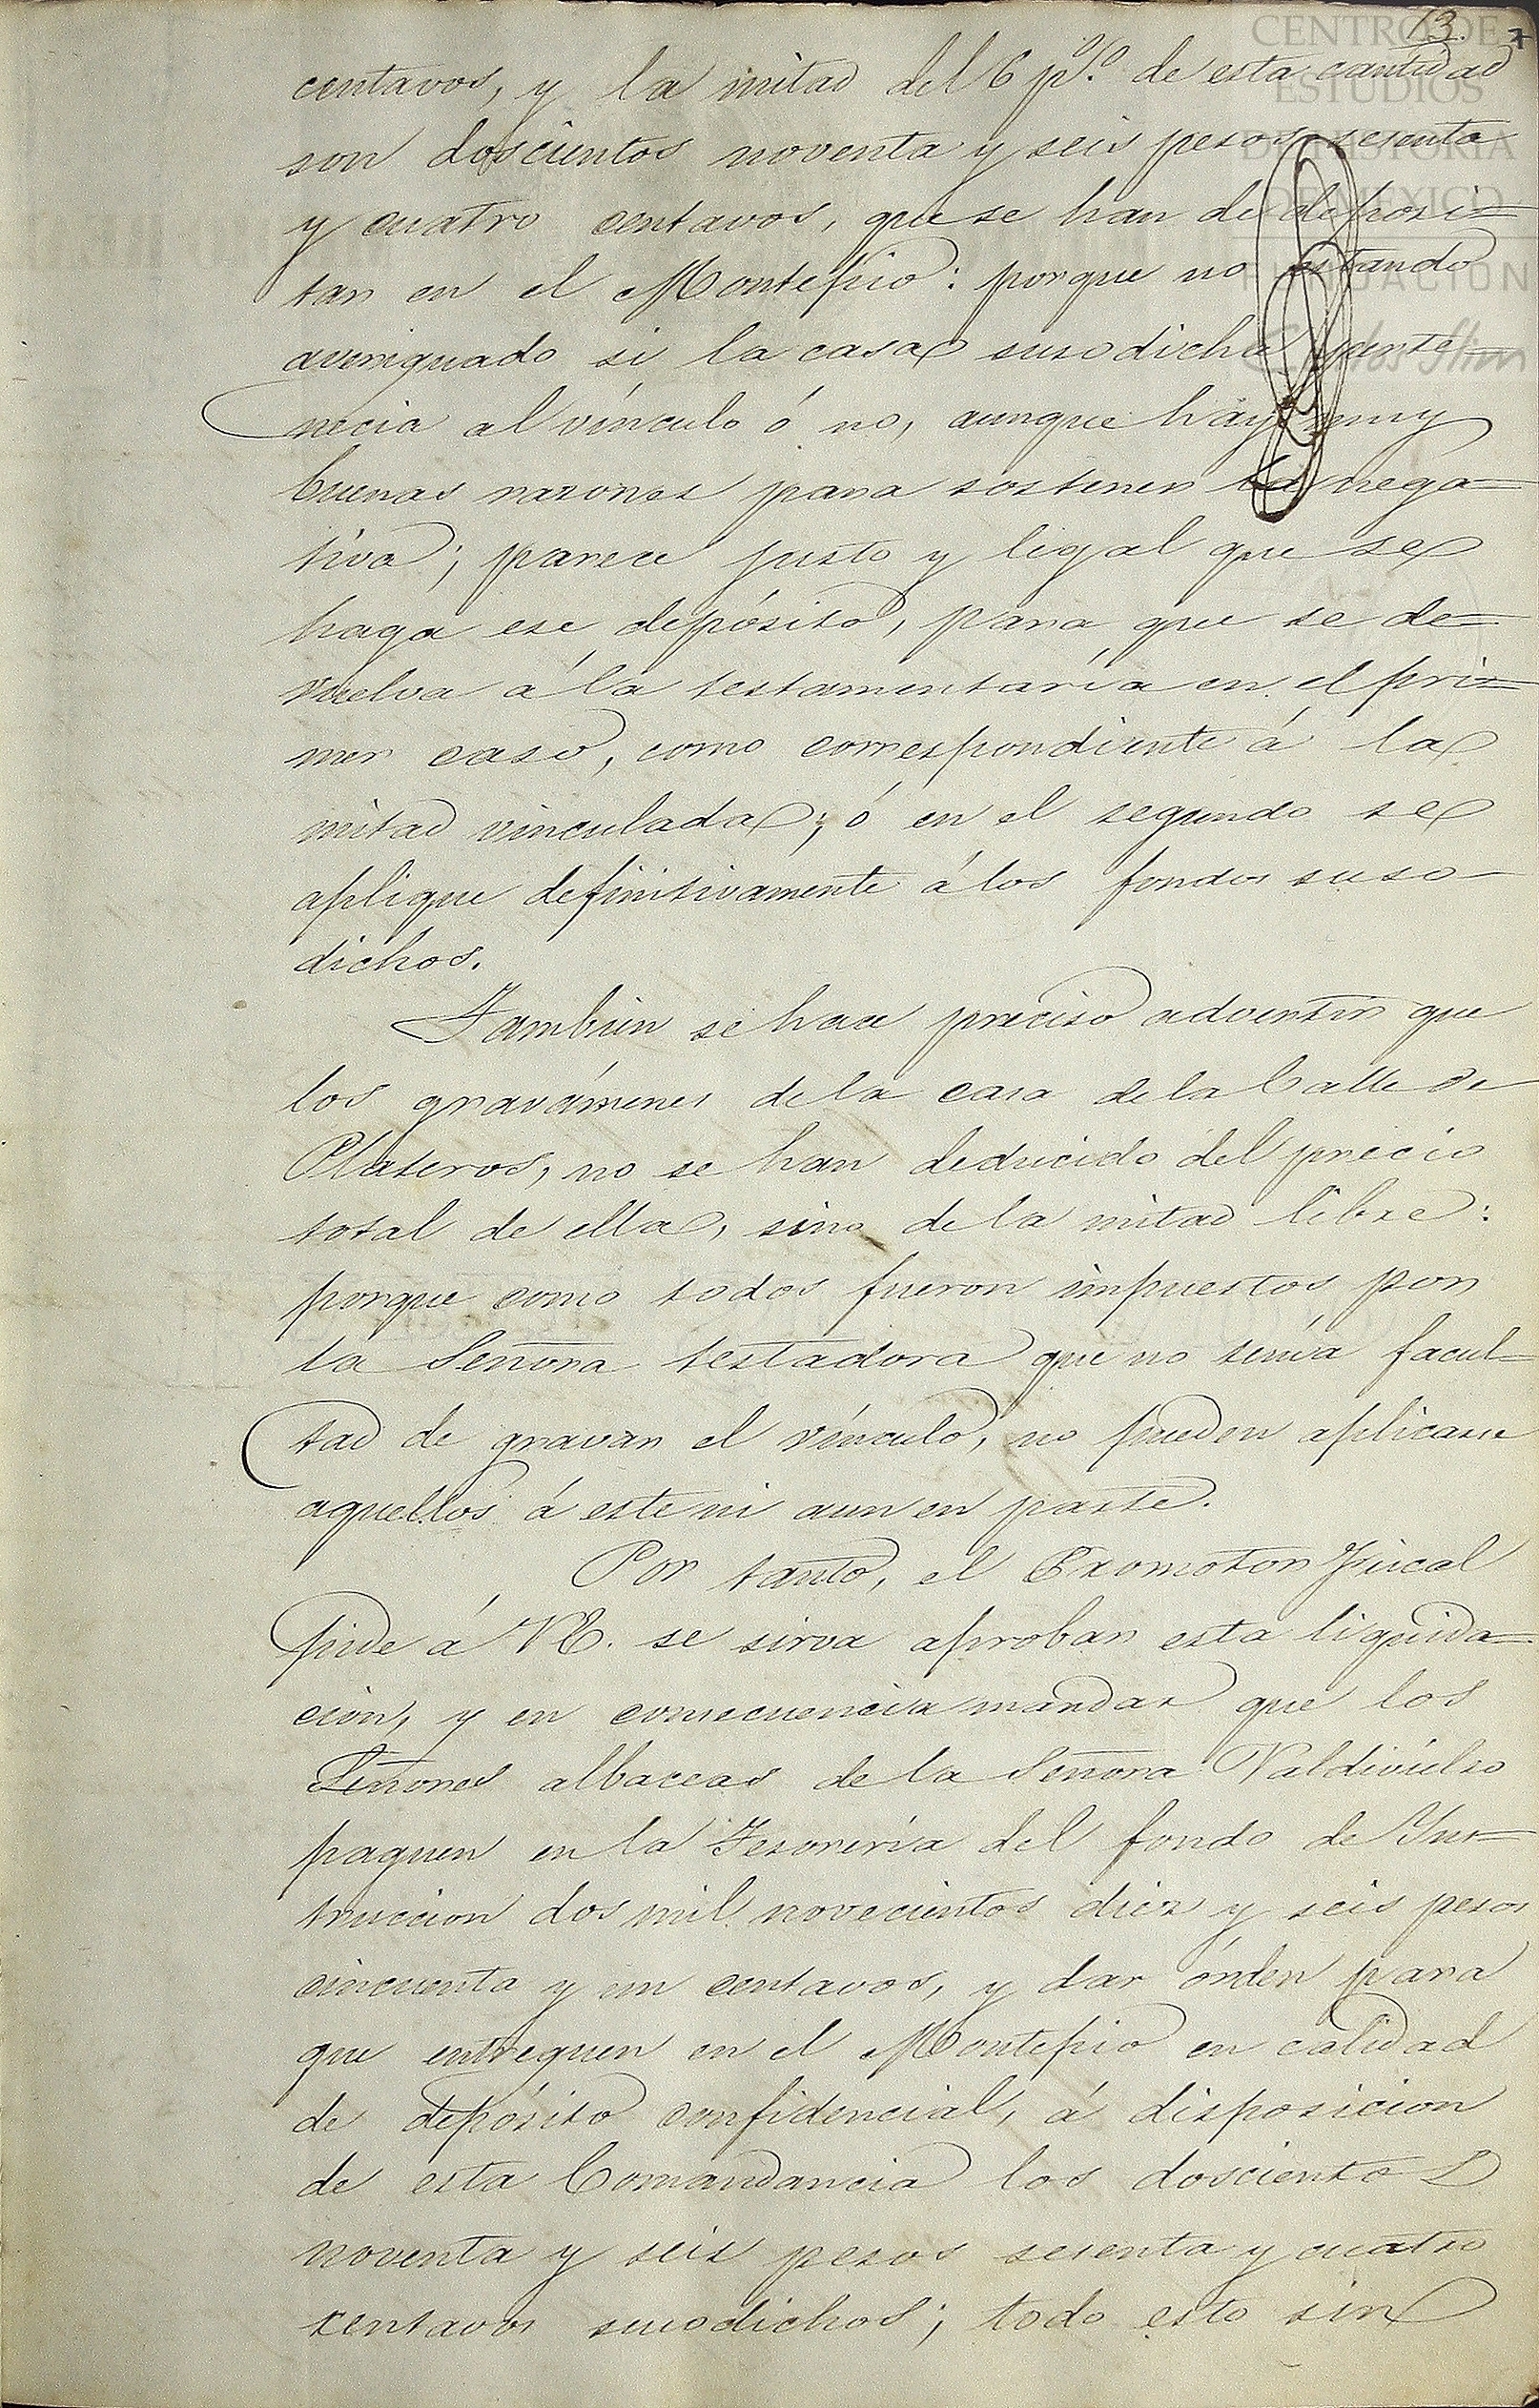 13. 7
CENTRO DE
ESTUDIOS
DE HISTORIA
DE MEXICO
FUNDACION
Carlos Slim
centavos, y la mitad del 6 p%. de esta cantidad
son doscientos noventa y seis pesos sesenta
y cuatro centavos, que se han de deposi=
tar en el Montepio: porque no estando
averiguado si la casa susodicha perte-
necia al vínculo ó no, aunque haya muy
buenas razones para sostener la nega=
tiva; parece justo y legal que se
haga ese depósito, para que se de=
vuelva á la testamentaría en el pri=
mer caso, como correspondiente á la
mitad vinculada; ó en el segundo se
aplique definitivamente á los fondos suso-
dichos.
Tambien se hace preciso advertir que
los gravámenes de la casa de la Calle de
Plateros, no se han deducido del precio
total de ella, sino de la mitad libre:
porque como todos fueron impuestos por
la Señora testadora que no tenía facul=
tad de gravar el vínculo, no pueden aplicarse
aquellos á este ni aun en parte.
Por tanto, el Promotor Fiscal
pide á VE. se sirva aprobar esta liquida=
cion, y en consecuencia mandar que los
Señores albaceas de la Señora Valdivielso
paguen en la Tesorería del fondo de Ins=
truccion dos mil novecientos diez y seis pesos
cincuenta y un centavos, y dar órden para
que entreguen en el Montepio en calidad
de depósito confidencial, á disposicion
de esta Comandancia los doscientos
noventa y seis pesos sesenta y cuatro
centavos susodichos; todo esto sin